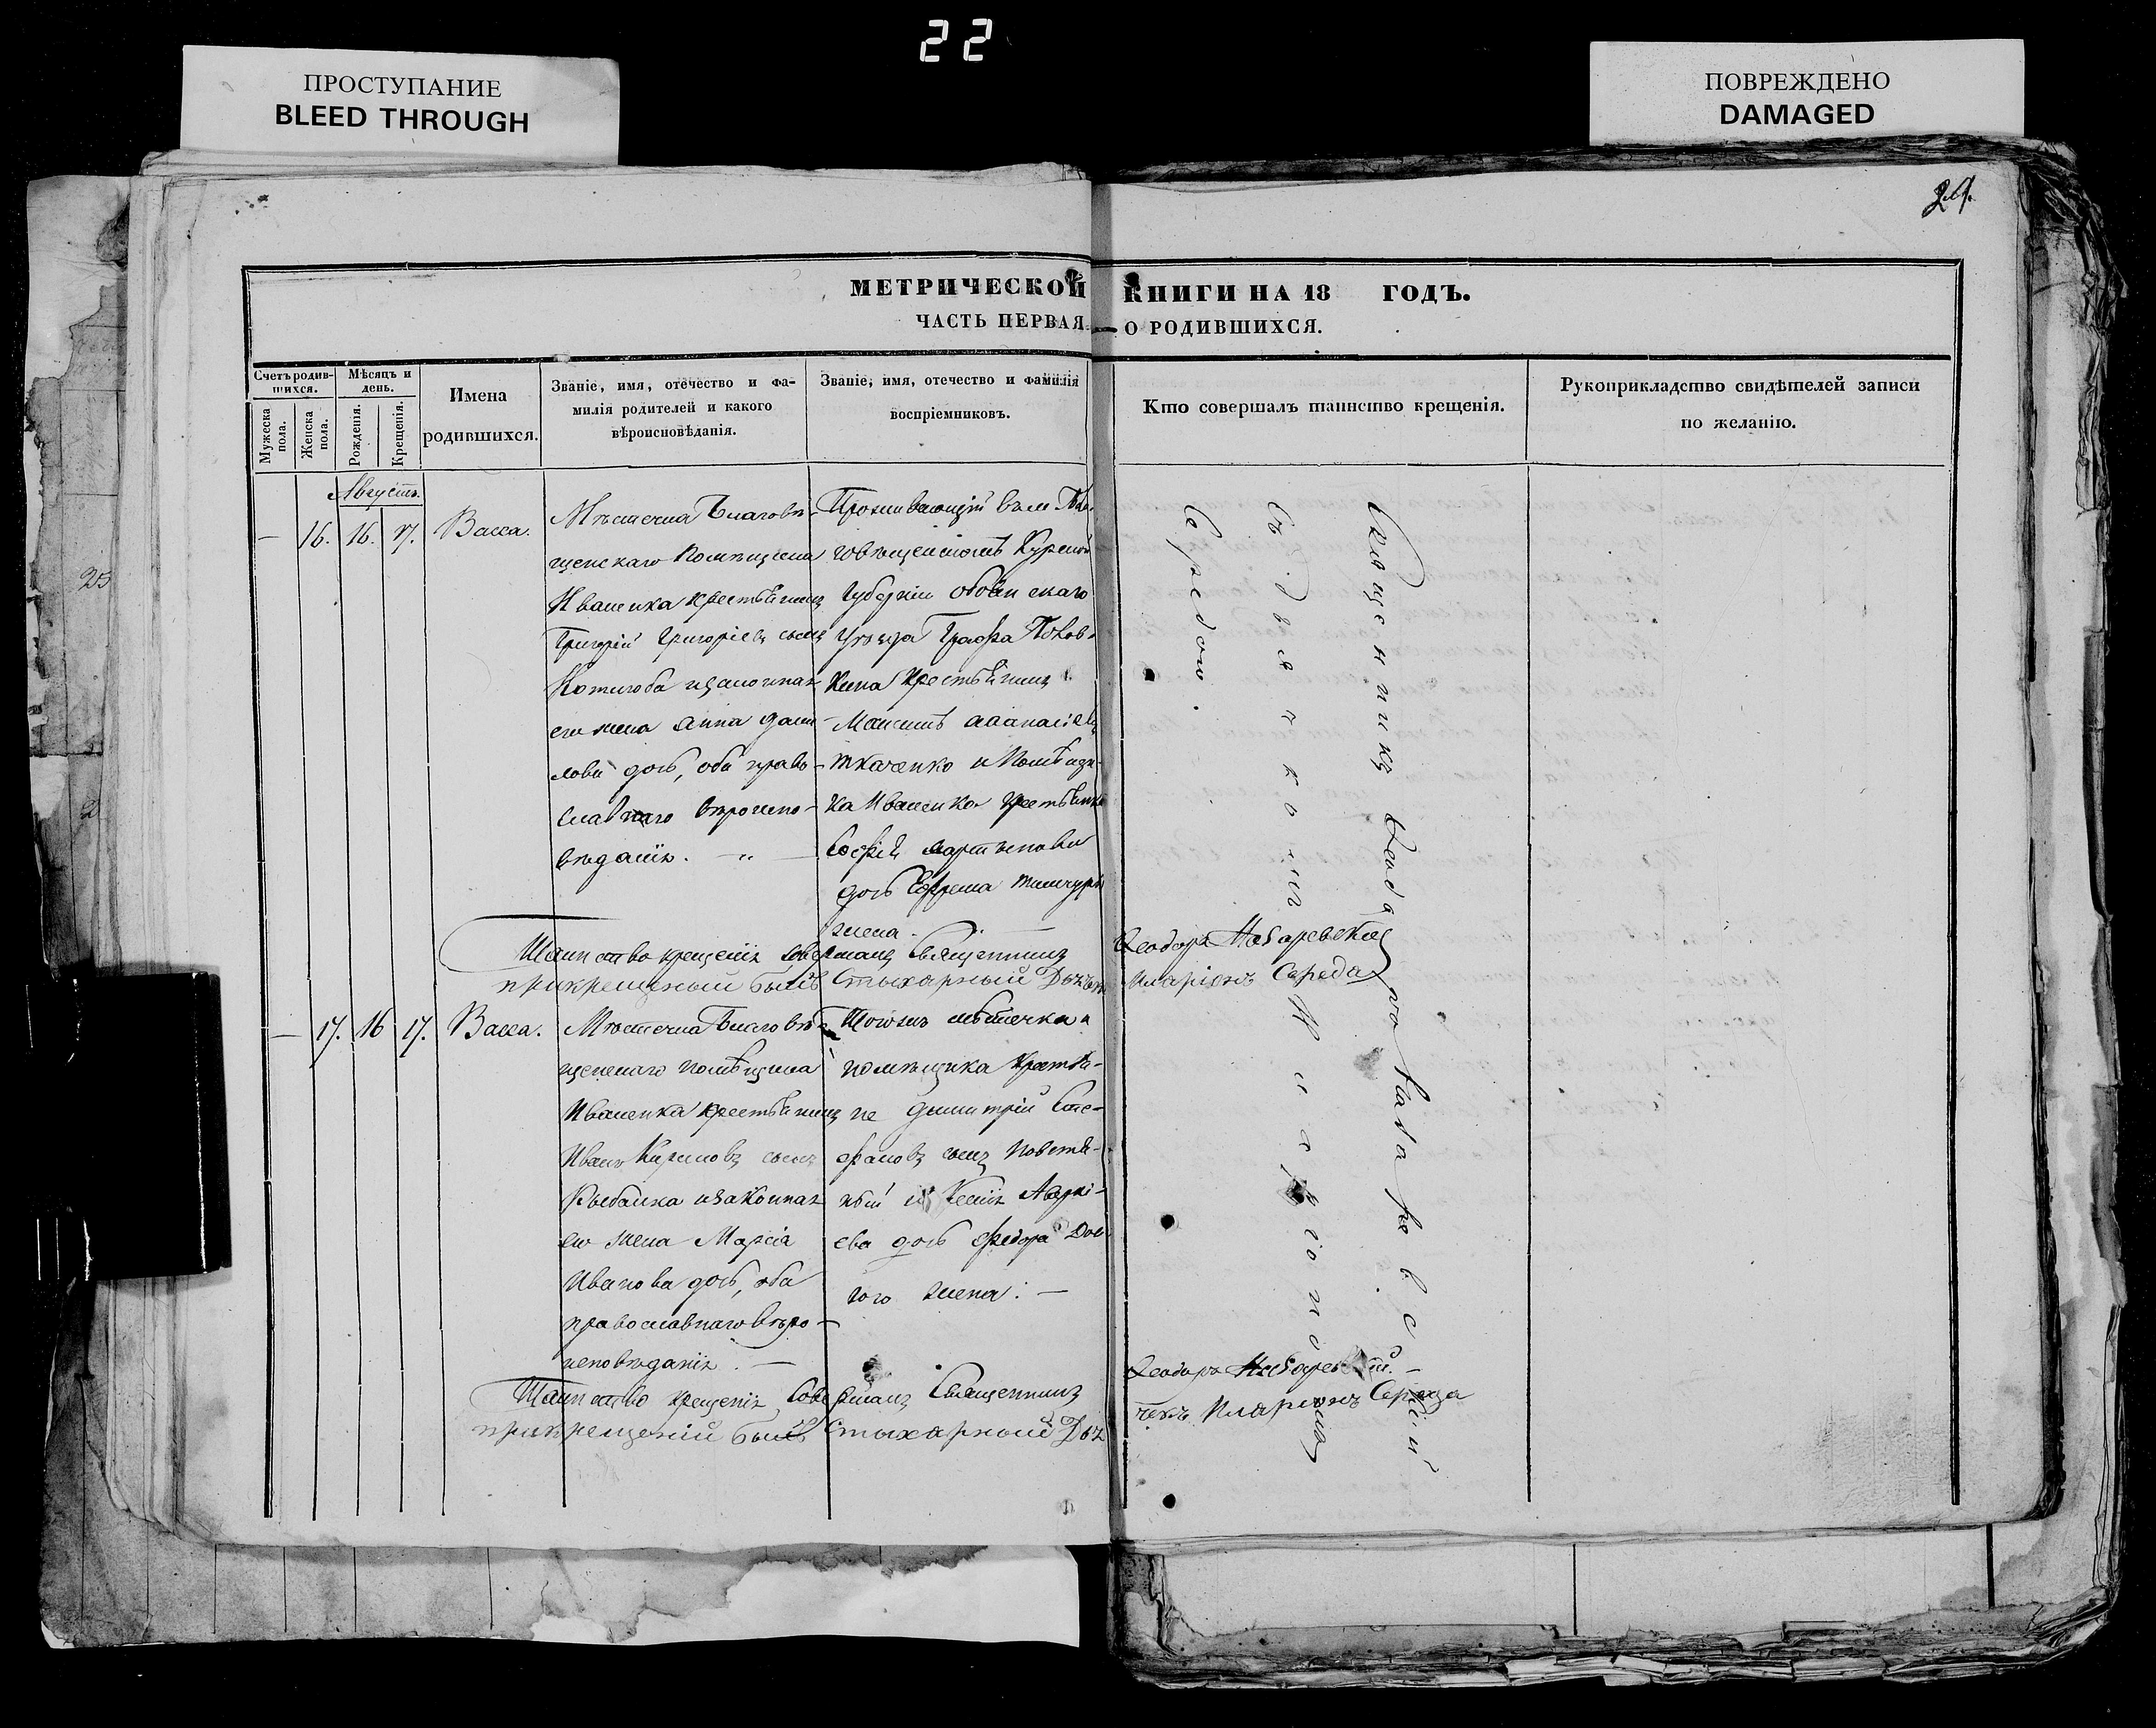 22
ПРОСТУПАНИЕ
BLEED THROUGH
ПОВРЕЖДЕНО
DAMAGED
МЕТРИЧЕСКОЙ КНИГИ НА 18 ГОДЪ.
ЧАСТЬ ПЕРВАЯ — О РОДИВШИХСЯ.
Счетъ родив-
шихся.
Мужеска
пола.
Женска
пола.
Мѣсяцъ и
день.
Рожденія.
Крещенія.
Имена
родившихся.
Званіе, имя, отечество и фа-
милія родителей и какого
вѣроисповѣданія.
Званіе, имя, отечество и фамилія
воспріемниковъ.
Кто совершалъ таинство крещенія.
Рукоприкладство свидѣтелей записи
по желанію.
25
Августъ.
— 16. 16. 17. Васса.
Мѣстечка Благовѣ-
щенскаго помѣщика
Иваненка крестьянинъ
Григорій Григорьевъ сынъ
законная
его жена Анна Дани-
лова дочь, оба право-
славнаго вѣроиспо-
вѣданія. — „ —
Проживающій въ м. Бла-
говѣщенскомъ Курской
Губерніи Обоянскаго
Уѣзда Графа
крестьянинъ
Максимъ Аѳанасіевъ
Ткаченко и помѣщи-
ка Иваненка крестьянка
Софія Мартынова
дочь Ефрема
жена.
Таинство крещенія совершалъ Священникъ Ѳеодоръ
при крещеніи былъ Стихарный Дьячекъ Иларіонъ Середа
— 17. 16 17. Васса.
Мѣстечка Благовѣ-
щенскаго помѣщика
Иваненка крестьянинъ
Иванъ Кириловъ сынъ
Рыбалка и законная
его жена Марѳа
Иванова дочь, оба
православнаго вѣро-
исповѣданія. —
Тогожъ мѣстечка и
помѣщика крестья-
не Димитрій Сте-
фановъ сынъ
и Ксенія
ева дочь Федора Дол
гого жена. —
Таинство крещенія совершалъ Священникъ Ѳеодоръ
при крещеніи былъ Стихарный Дьячекъ Иларіонъ Середа
Священникъ Ѳеодоръ
Съ Дьячкомъ Иларіономъ
Середою.